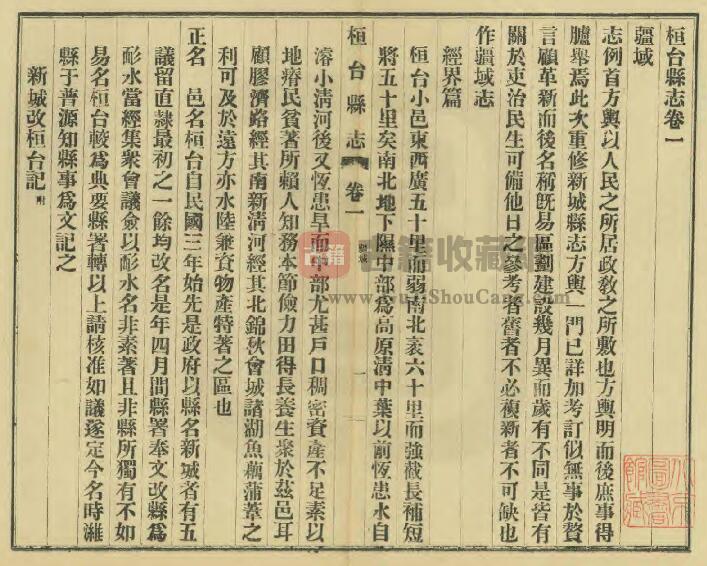 桓台縣志卷一
疆域
志例首方輿以人民之所居政教之所敷也方輿明而後庶事得
臚舉焉此次重修新城縣志方輿一門已詳加考訂似無事於贅
言顧革新而後名稱旣易區劃建設幾月異而歲有不同是皆有
關於吏治民生可備他日之參考者舊者不必複新者不可缺也
作疆域志
經界篇
桓台小邑東西廣五十里而弱南北袤六十里而強截長補短
將五十里矣南北地下隰中部爲高原淸中葉以前恆患水自
桓台縣志 卷一 疆域 一
濬小淸河後又恆患旱而中部尤甚戶口稠密資產不足素以
地瘠民貧著所賴人知務本節儉力田得長養生衆於茲邑耳
顧膠濟路經其南新淸河經其北錦秋會城諸湖魚藕蒲葦之
利可及於遠方亦水陸兼資物產特著之區也
正名 邑名桓台自民國三年始先是政府以縣名新城者有五
議留直隸最初之一餘均改名是年四月間縣署奉文改縣爲
耏水當經集衆會議僉以耏水名非素著且非縣所獨有不如
易名桓台較爲典要縣署轉以上請核准如議遂定今名時濰
縣于普源知縣事爲文記之
新城改桓台記 附
古籍收藏
www.GuJiShouCang.com